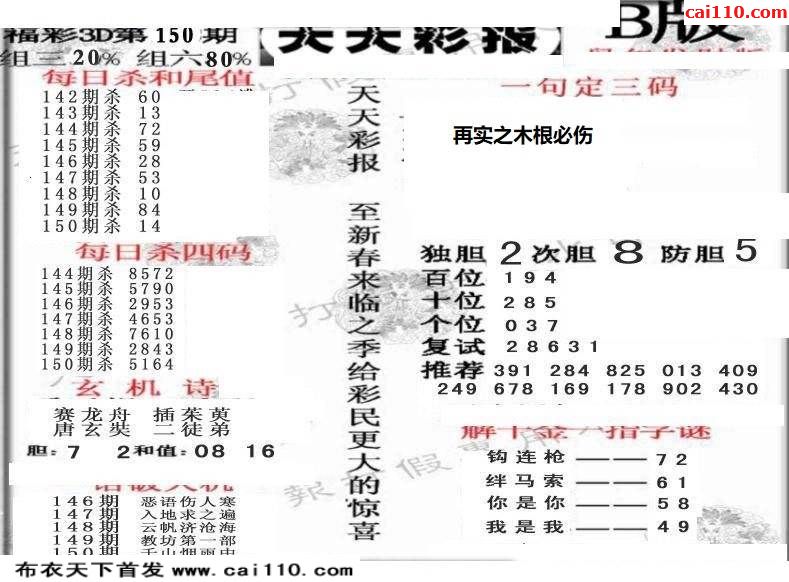 cai110.com
福彩3D第150期
【天天彩报
B版
组三20% 组六80%
每日杀和尾值
142期杀 60
143期杀 13
144期杀 72
145期杀 59
146期杀 28
147期杀 53
148期杀 10
149期杀 84
150期杀 14
每日杀四码
144期杀 8572
145期杀 5790
146期杀 2953
147期杀 4653
148期杀 7610
149期杀 2843
150期杀 5164
玄机诗
赛龙舟 插茱萸
唐玄奘 二徒弟
胆:7 2和值:08 16
146期 恶语伤人寒
147期 入地求之遍
148期 云帆济沧海
149期 教坊第一部
150期 千山烟雨中
天天彩报 至新春来临之季给彩民更大的惊喜
一句定三码
再实之木根必伤
独胆2次胆8防胆5
百位 194
十位 285
个位 037
复试 28631
推荐 391 284 825 013 409
249 678 169 178 902 430
解千金六指字谜
钩连枪————72
绊马索————61
你是你————58
我是我————49
布衣天下首发 www.cai110.com